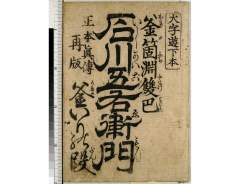 大字遊下本
釜箇淵雙巴
石川五右衛門
釜いりの段
正本眞傳
再版